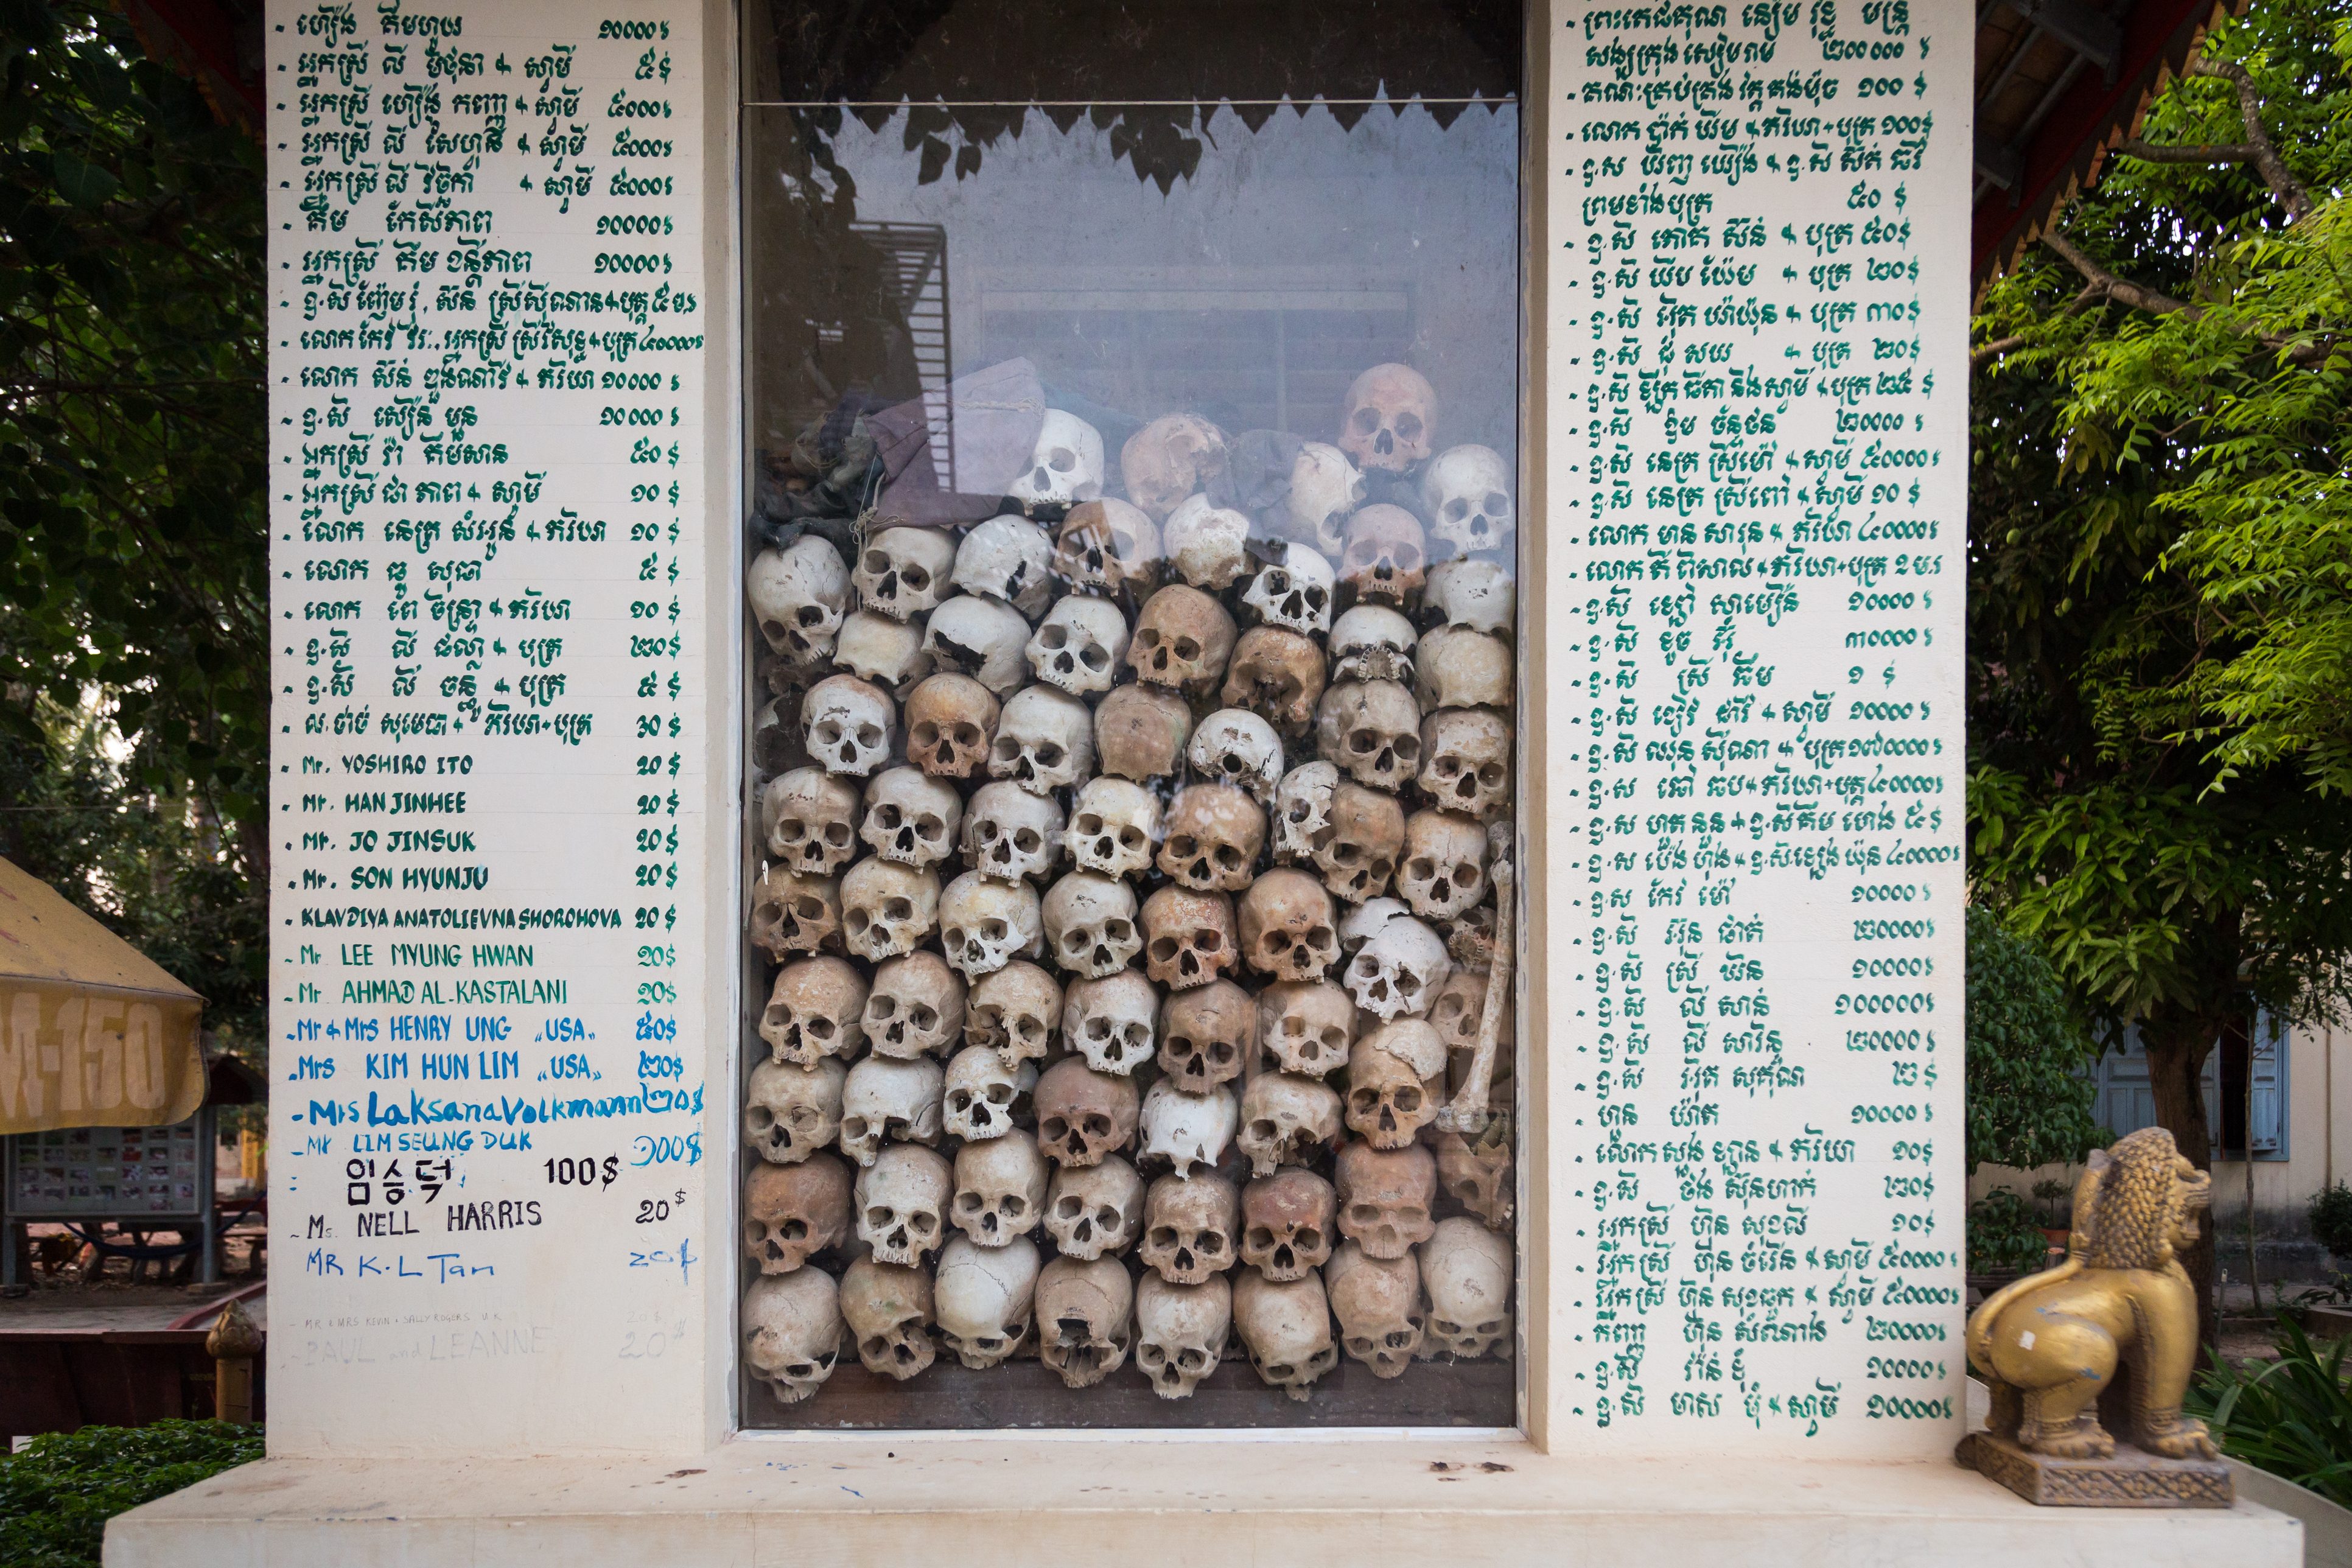 ហៀង គីមហួយ ១០០០០៛
អ្នកស្រី លី មុំថុនា & ស្វាមី ៥$
អ្នកស្រី ហៀង កញ្ញា & ស្វាមី ៥០០០៛
អ្នកស្រី លី សៃហួន & ស្វាមី ៥០០០៛
អ្នកស្រី លី វិច្ឆិកា & ស្វាមី ៥០០០៛
គីម កែសីភាព ១០០០០៛
អ្នកស្រី គីម ខន្តីភាព ១០០០០៛
& បុត្រ
លោក កែវ & បុត្រ ៤០០០០៛
លោក ស៊ន & ភរិយា ១០០០០ ៛
ឧ.សិ សៀន មួន ១០០០០៛
អ្នកស្រី វ៉ា គីមសាន ៥០ $
អ្នកស្រី ជា ភាព & ស្វាមី ១០ $
លោក នេត្រ សំអូន & ភរិយា ១០ $
លោក ធូ សុធា ៥ $
លោក ពៅ ចន្ត្រា & ភរិយា ១០ $
ឧ.សិ លី ផល្លា & បុត្រ ២០$
ឧ.សិ លី ចន្ធូ & បុត្រ ៥ $
ភរិយា+បុត្រ 30 $
Mr. YOSHIRO ITO 20 $
Mr. HAN JINHEE 20 $
Mr. JO JINSUK 20 $
Mr. SON HYUNJU 20 $
KLAVDIYA ANATOLIEVNA SHOROHOVA 20 $
Mr LEE MYUNG HWAN 20$
Mr AHMAD AL-KASTALANI 20$
Mr & Mrs HENRY UNG „USA„ ៥០$
Mrs KIM HUN LIM „USA„ ២០$
Mrs Laksana Volkmann ២០$
Mr LIM SEUNG DUK ១០០$
임승덕 100$
Ms. NELL HARRIS 20$
MR K.L Tan 20$
MR & MRS KEVIN & SALLY ROGERS U.K 20$
PAUL and LEANNE 20$
ព្រះតេជគុណ ញៀម មន្ត្រី
សង្ឃក្រុងសៀមរាប ២០០០០០ ៛
គណៈគ្រប់គ្រង 100 $
លោក ប៉ាក់ & ភរិយា+បុត្រ 100$
& ឧ.សិ
ព្រមទាំងបុត្រ ៥០ $
ឧ.សិ ភោគ ស៊ីន់ & បុត្រ ៥០$
ឧ.សិ យីប យ៉ែម & បុត្រ ២០$
ឧ.សិ & បុត្រ ៣០$
ឧ.សិ ជុំ សយ & បុត្រ ២០$
ឧ.សិ ធីតា និងស្វាមី & បុត្រ ២៥ $
ឧ.សិ ខ្ទម ច័ន្ទថន ២០០០០ ៛
ឧ.សិ នេត្រ ស្រីម៉ៅ & ស្វាមី ៥០០០០៛
ឧ.សិ នេត្រ ស្រីពៅ & ស្វាមី ១០ $
លោក មាន សារុន & ភរិយា ៤០០០០៛
លោក គី ពិសាល & ភរិយា+បុត្រ
ឧ.សិ ១០០០០ ៛
ឧ.សិ ខូច អ៊ុំ ៣០០០០ ៛
ឧ.សិ ស្រី គឹម ១ $
ឧ.សិ ខៀវ ជាវី & ស្វាមី ១០០០០ ៛
ឧ.សិ ឈុន ស៊ីណា & បុត្រ ១៧០០០០៛
ឧ.ស & ភរិយា+បុត្រ ៤០០០០៛
ឧ.ស ហួត នួន & ឧ.សិ គឹម ហេង ៥ $
ឧ.ស ប៉េង ហ៊ួង & ឧ.សិ ៤០០០០៛
ឧ.ស កែវ ម៉ៅ ១០០០០៛
ឧ.សិ អ៊ុន ផាត់ ២០០០០៛
ឧ.សិ ស្រី ឃន ១០០០០៛
ឧ.សិ លី សាន់ ១០០០០០៛
ឧ.សិ លី សារិន្ទ ២០០០០៛
ឧ.សិ អ៊ុត សុគុណ ២ $
ហួន យ៉ាត ១០០០០៛
លោក សួង & ភរិយា ១០$
ឧ.សិ ថង ស៊ុនហាក់ ២០$
អ្នកស្រី ហ៊ិន សុខលី ១០$
អ្នកស្រី ហ៊ិន ចំរើន & ស្វាមី ៥០០០០៛
អ្នកស្រី ហ៊ិន & ស្វាមី ៥០០០០៛
កញ្ញា ហ៊ិន សំណាង ២០០០០៛
ឧ.សិ វ៉ាន់ ឌុំ ១០០០០៛
ឧ.សិ មាស ម៉ុំ & ស្វាមី ១០០០០៛